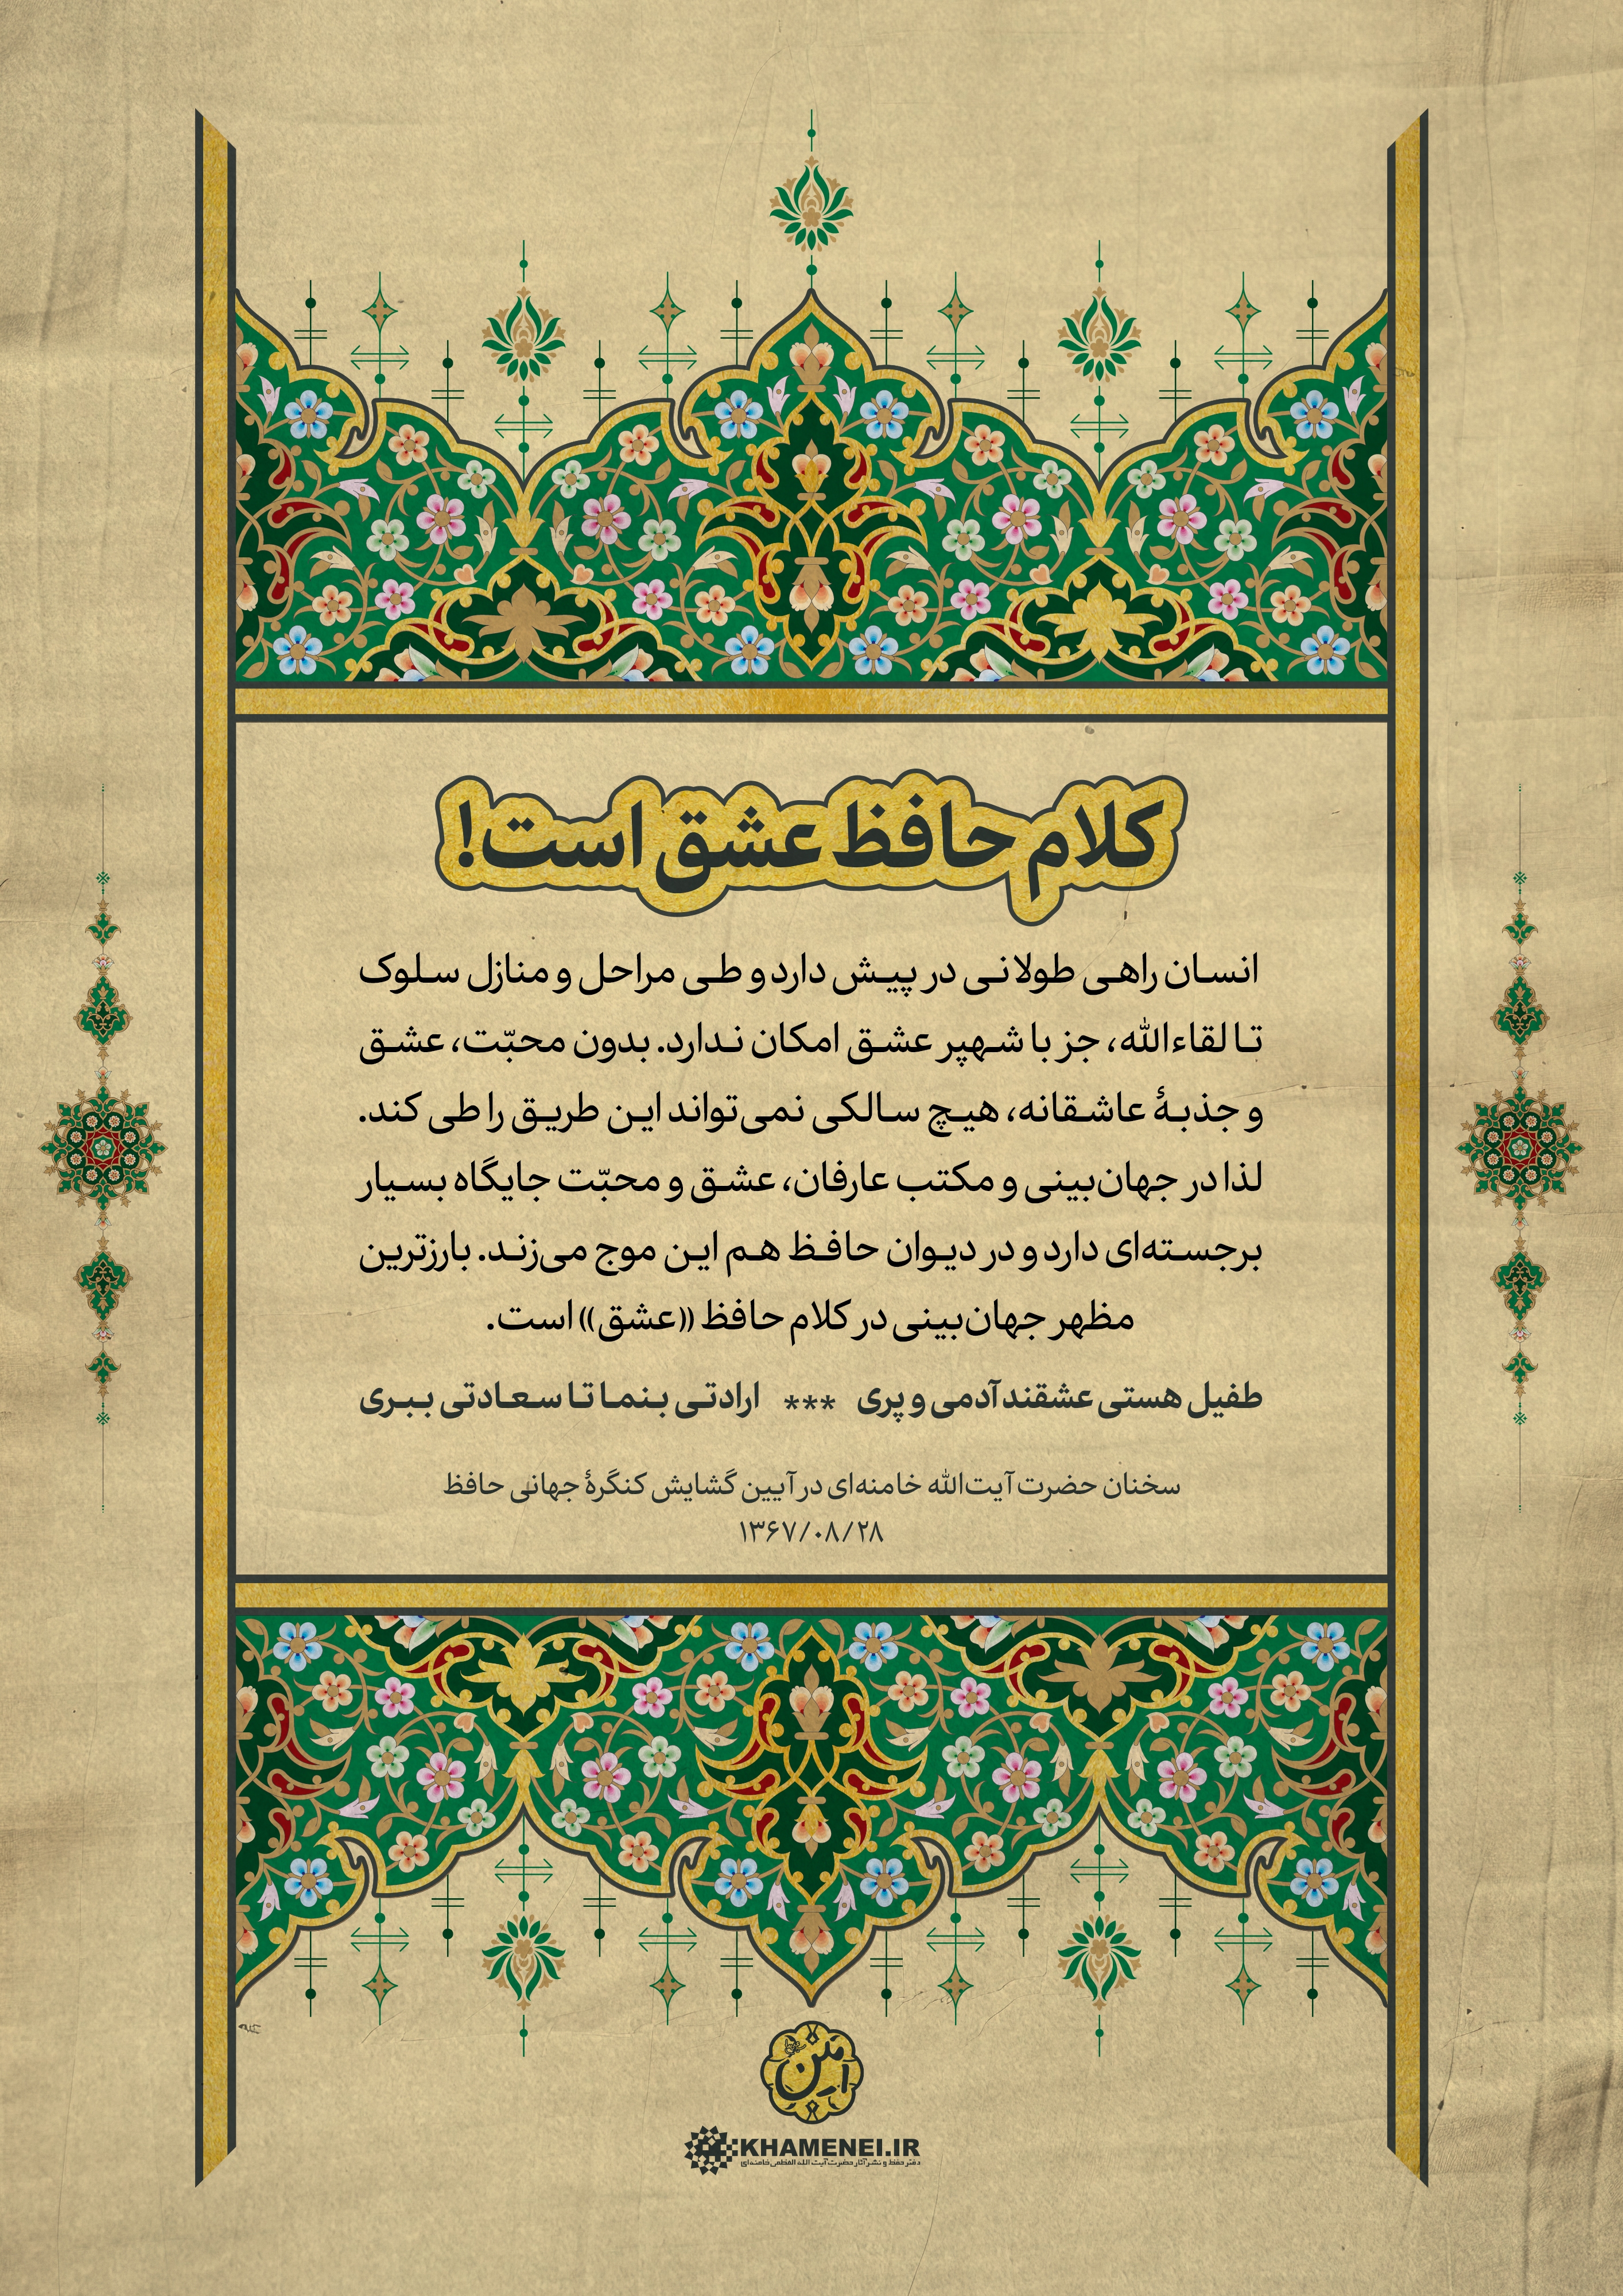 کلام حافظ عشق است!
انسان راهی طولانی در پیش دارد و طی مراحل و منازل سلوک
تا لقاءالله، جز با شهپر عشق امکان ندارد. بدون محبّت، عشق
و جذبهٔ عاشقانه، هیچ سالکی نمی‌تواند این طریق را طی کند.
لذا در جهان‌بینی و مکتب عارفان، عشق و محبّت جایگاه بسیار
برجسته‌ای دارد و در دیوان حافظ هم این موج می‌زند. بارزترین
مظهر جهان‌بینی در کلام حافظ «عشق» است.
طفیل هستی عشقند آدمی و پری *** ارادتی بنما تا سعادتی ببری
سخنان حضرت آیت‌الله خامنه‌ای در آیین گشایش کنگرهٔ جهانی حافظ
۱۳۶۷/۰۸/۲۸
KHAMENEI.IR
دفتر حفظ و نشر آثار حضرت آیت الله العظمی خامنه‌ای